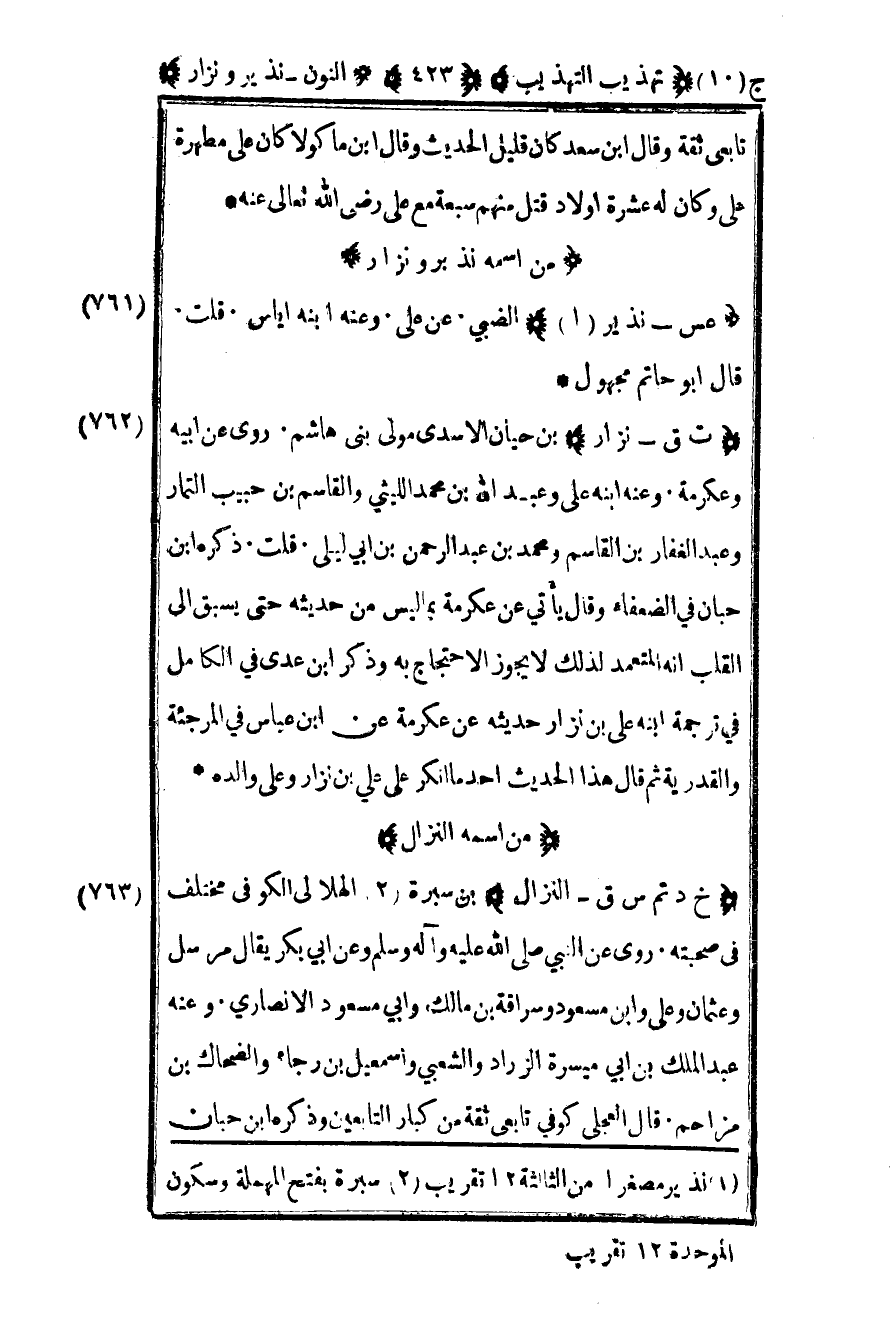 ج (١٠) ﴿ تهذيب التهذيب ﴾ ﴿ ٤٢٣ ﴾ ﴿ النون ـ نذير و نزار ﴾
تابعى ثقة وقال ابن سعد كان قليل الحديث وقال ابن ماكولا كان على مطهرة
على وكان له عشرة اولاد قتل منهم سبعة مع على رضى الله تعالى عنه *
﴿ من اسمه نذير و نزار ﴾
(٧٦١) ﴿ عس ـ نذير (١) ﴾ الضبي · عن على · وعنه ابنه اياس · قلت ·
قال ابو حاتم مجهول *
(٧٦٢) ﴿ ت ق ـ نزار ﴾ بن حيان الاسدى مولى بنى هاشم · روى عن ابيه
وعكرمة · وعنه ابنه على وعبد الله بن محمد الليثي والقاسم بن حبيب التمار
وعبد الغفار بن القاسم ومحمد بن عبد الرحمن بن ابي ليلى · قلت · ذكره ابن
حبان في الضعفاء وقال يأتي عن عكرمة بما ليس من حديثه حتى يسبق الى
القلب انه المتعمد لذلك لا يجوز الاحتجاج به وذكر ابن عدى في الكامل
في ترجمة ابنه على بن نزار حديثه عن عكرمة عن ابن عباس في المرجئة
والقدرية ثم قال هذا الحديث احد ما انكر على علي بن نزار وعلى والده *
﴿ من اسمه النزال ﴾
(٧٦٣) ﴿ خ د تم س ق ـ النزال ﴾ بن سبرة (٢) الهلالى الكوفى مختلف
فى صحبته · روى عن النبي صلى الله عليه وآله وسلم وعن ابي بكر يقال مرسل
وعثمان وعلى وابن مسعود وسراقة بن مالك وابي مسعود الانصاري · وعنه
عبد الملك بن ابي ميسرة الزراد والشعبي واسمعيل بن رجاء والضحاك بن
مزاحم · قال العجلى كوفي تابعى ثقة من كبار التابعين وذكره ابن حبان
(١) نذير مصغرا من الثالثة ١٢ تقريب (٢) سبرة بفتح المهملة وسكون
الموحدة ١٢ تقريب